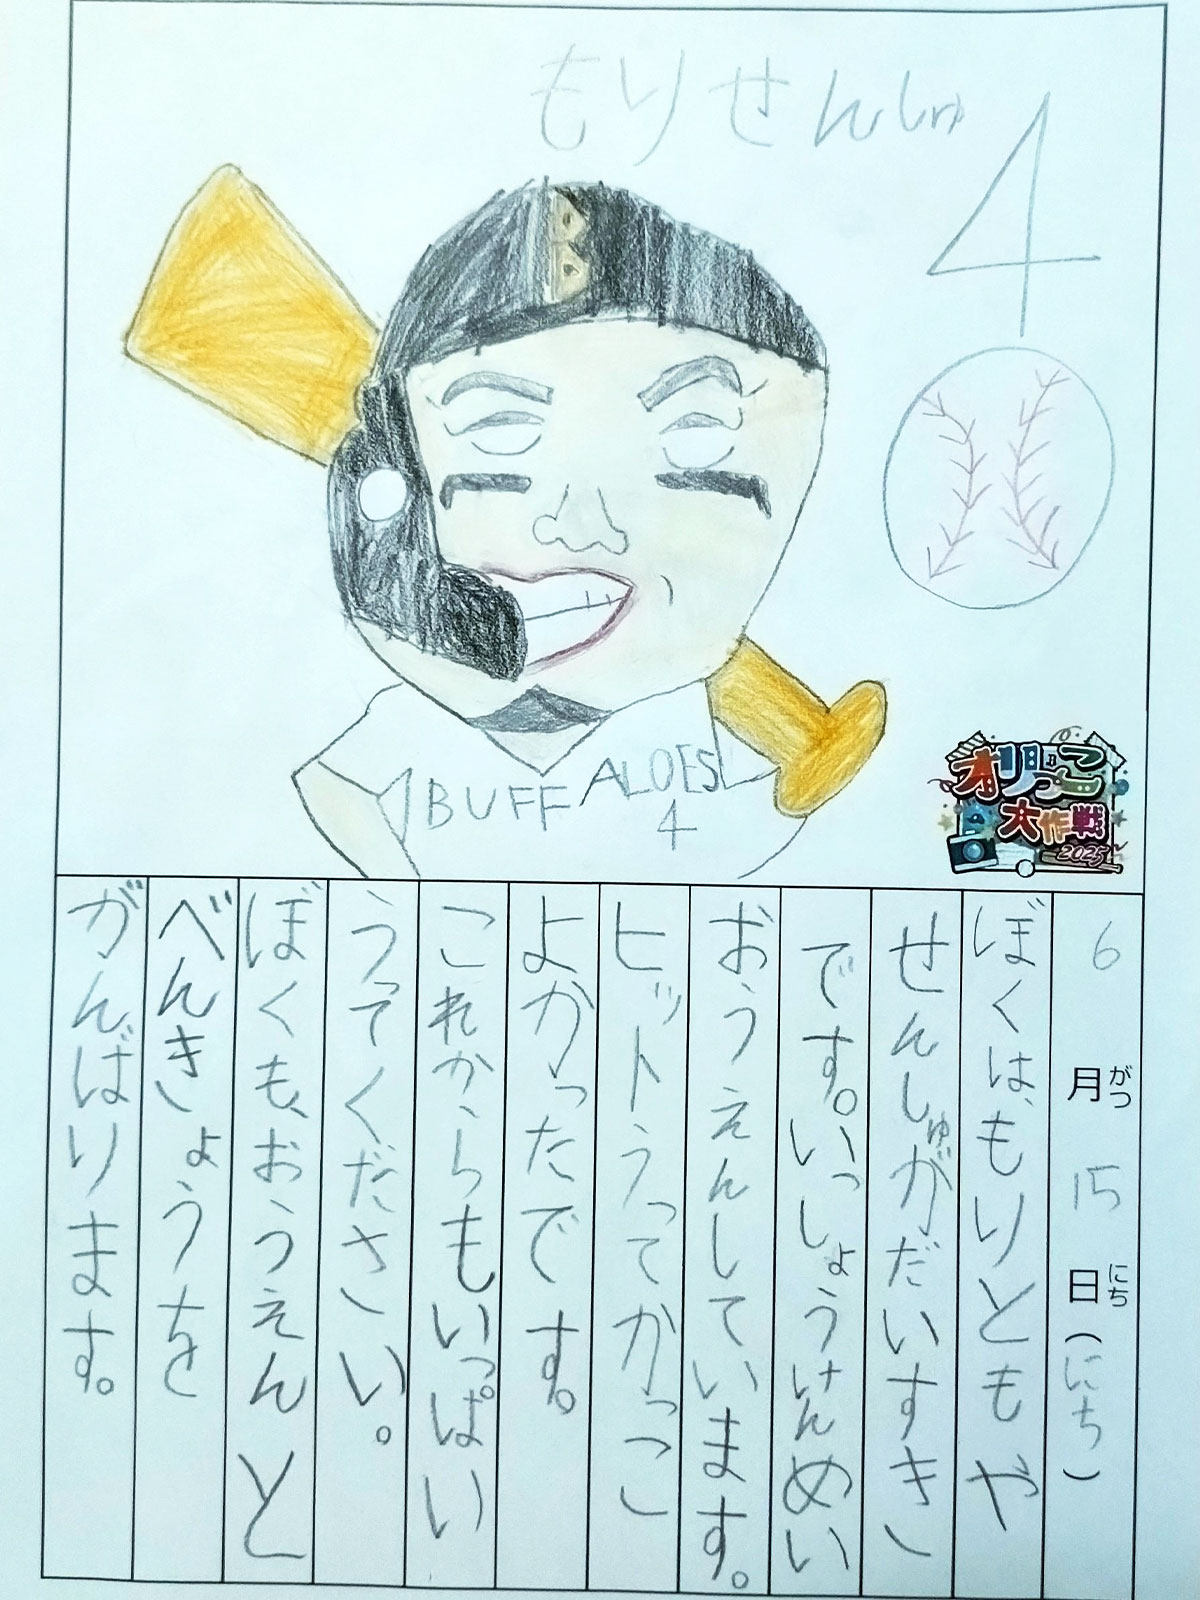 もりせんしゅ
4
BUFFALOES
4
オリっこ
大作戦
2025
6月15日(にち)
がつ
にち
ぼくは、もりともや
せんしゅがだいすき
です。いっしょうけんめい
おうえんしています。
ヒットうってかっこ
よかったです。
これからもいっぱい
うってください。
ぼくも、おうえんと
べんきょうを
がんばります。